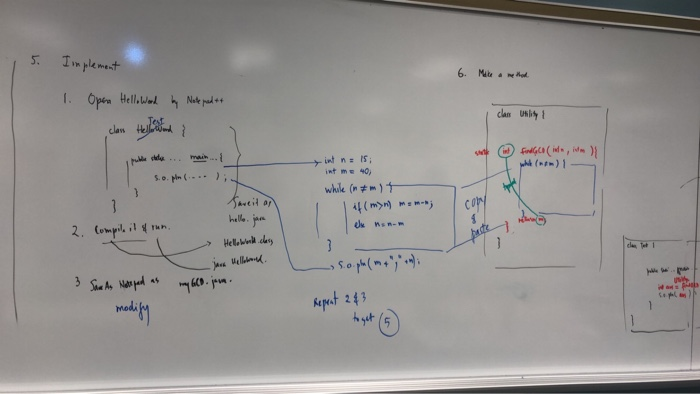 5. Implement
1. Open HelloWorld by Notepad++
Test
class HelloWorld {
public static ... main ... {
s.o.pln (-----);
}
}
Save it as
hello.java
2. Compile it & run.
HelloWorld.class
java HelloWorld.
3 Save As Notepad as myGCD.java.
modify
int n = 15;
int m = 40;
while (n ≠ m) {
if (m>n) m = m-n;
else n=n-m
}
s.o.pln(m+","+n);
Repeat 2 & 3
to get 5
copy
&
paste
6. Make a method.
class Utility {
static int findGCD(int n, int m) {
while (n≠m) {
}
return(m)
}
}
class Test {
public
Utility
int ans =
s.o.pln(ans)
}
}